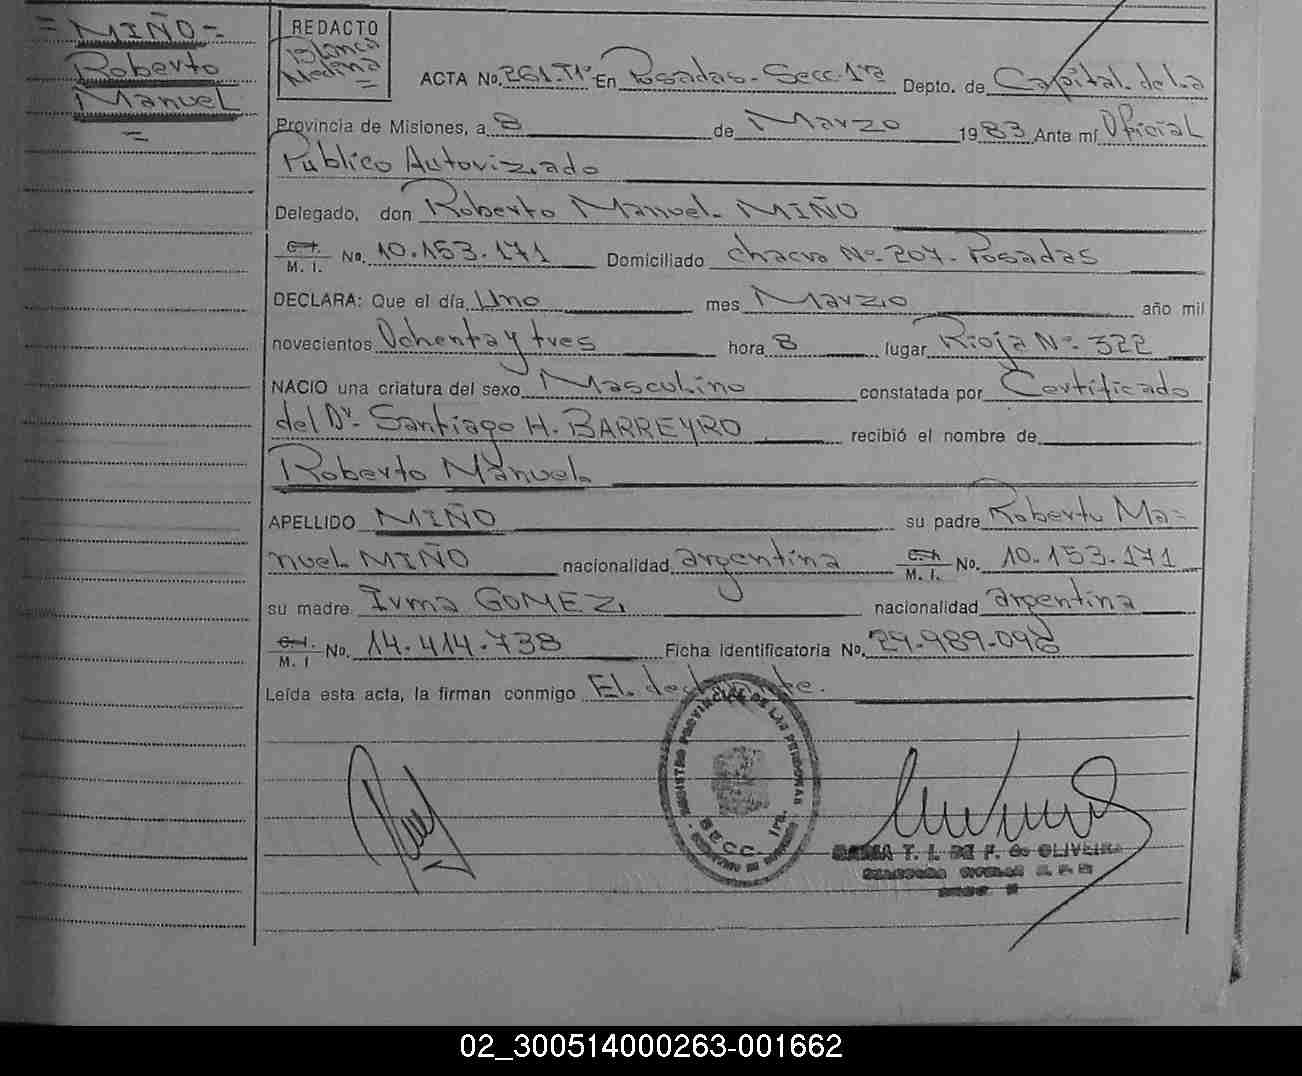 = MIÑO =
Roberto
Manuel
=
REDACTO
Blanca
Medina
=
ACTA No. 261.T1º En Posadas - Secc. 1ra Depto. de Capital de la
Provincia de Misiones, a 8 de Marzo 1983 Ante mí Oficial
Público Autorizado
Delegado, don Roberto Manuel MIÑO
C.I.
M. I. No. 10.153.171 Domiciliado chacra Nº 207 - Posadas
DECLARA: Que el día Uno mes Marzo año mil
novecientos Ochenta y tres hora 8 lugar Rioja Nº 322
NACIO una criatura del sexo Masculino constatada por Certificado
del Dr. Santiago H. BARREYRO recibió el nombre de
Roberto Manuel
APELLIDO MIÑO su padre Roberto Ma=
nuel MIÑO nacionalidad argentina C.I. M. I. No. 10.153.171
su madre Irma GOMEZ nacionalidad argentina
C.I.
M. I No. 14.414.738 Ficha identificatoria No. 29.989.098
Leída esta acta, la firman conmigo El declarante.
REGISTRO PROVINCIAL DE LAS PERSONAS
SECC. 1ra.
T. I. DE F. de OLIVEIRA
02_300514000263-001662